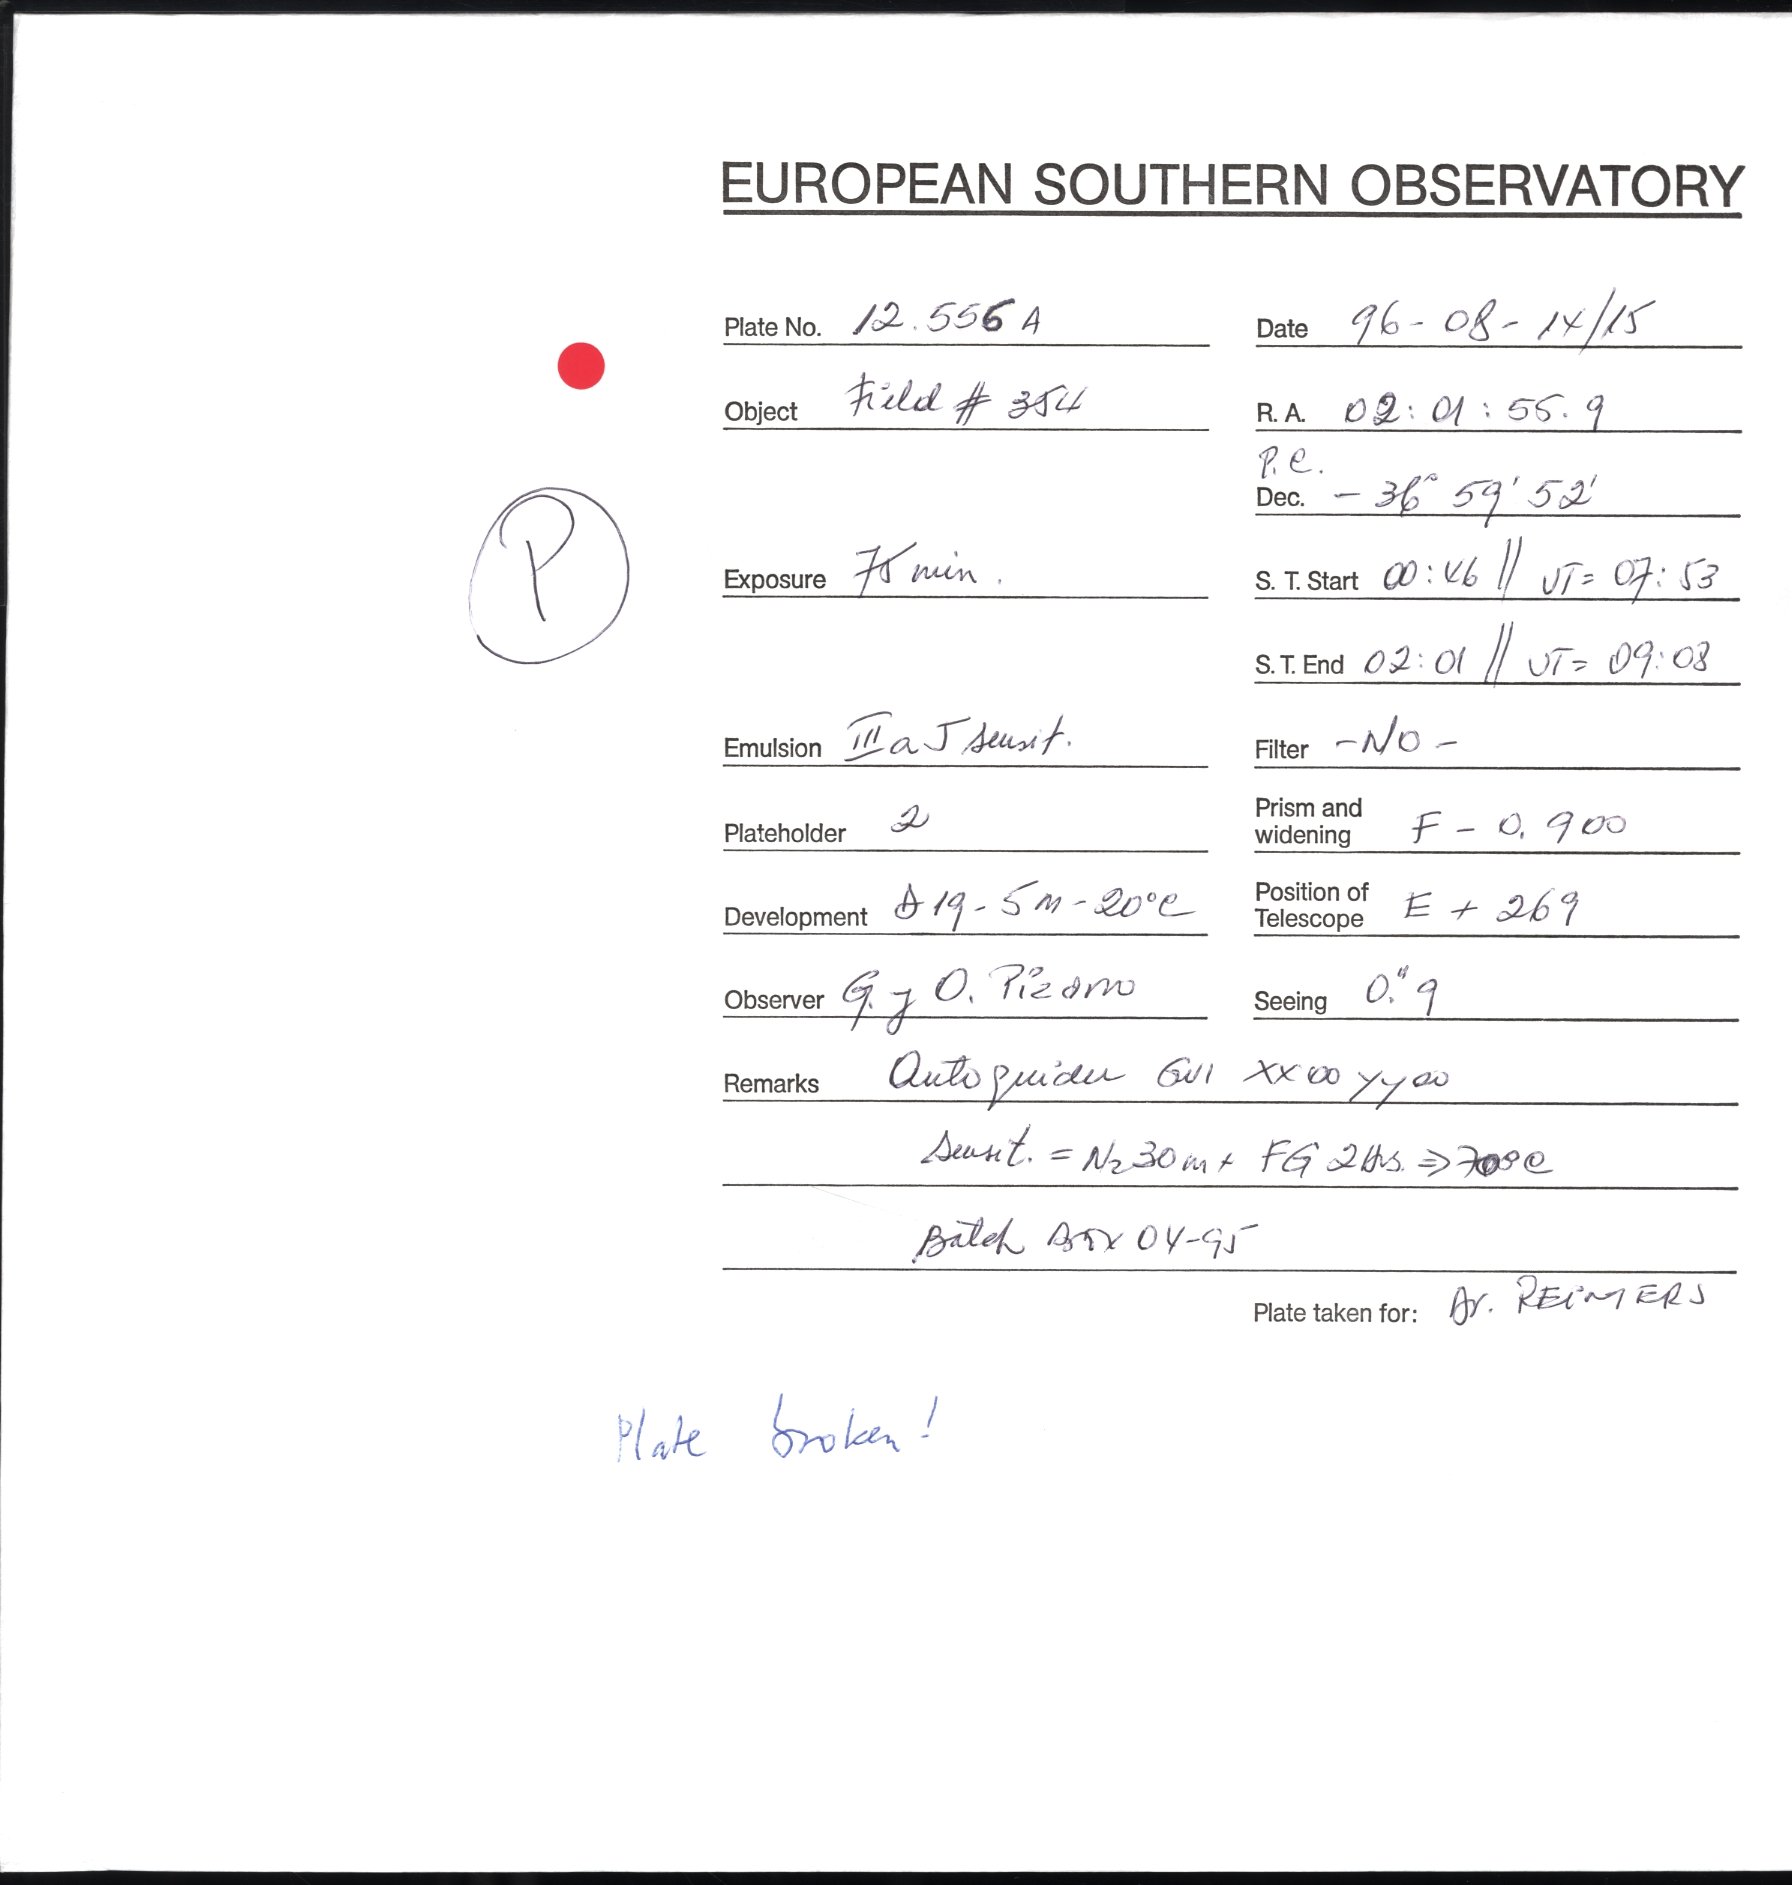 EUROPEAN SOUTHERN OBSERVATORY
Plate No. 12.556 A Date 96-08-14/15
Object Field # 354 R. A. 02:01:55.9
P.C.
Dec. -36° 59' 52'
P
Exposure 75 min. S. T. Start 00:46 // UT= 07:53
S. T. End 02:01 // UT= 09:08
Emulsion III a J sensit. Filter -NO-
Plateholder 2 Prism and widening F - 0.900
Development D19-5m-20°C Position of Telescope E + 269
Observer G. y O. Pizarro Seeing 0."9
Remarks Autoguider GV1 XX00 YY00
Sensit. = N2 30m + FG 2Hrs. ⇒ 70°C
Batch Box 04-95
Plate taken for: Dr. REIMERS
Plate broken!